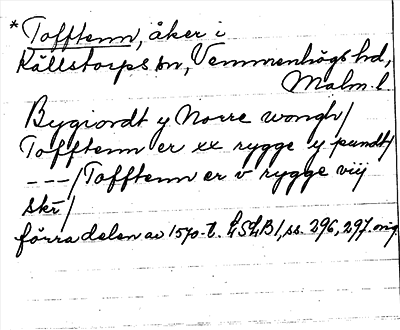 * Tofftenn, åker i
Källstorps sn, Vemmenhögs hd,
Malm. l.
Bygiordt y Norre wongh/
Tofftenn er xx rygge y pundt/
---/Tofftenn er v rygge viij
skr/
förra delen av 1570-t. LSLB I, ss. 296, 297. orig.